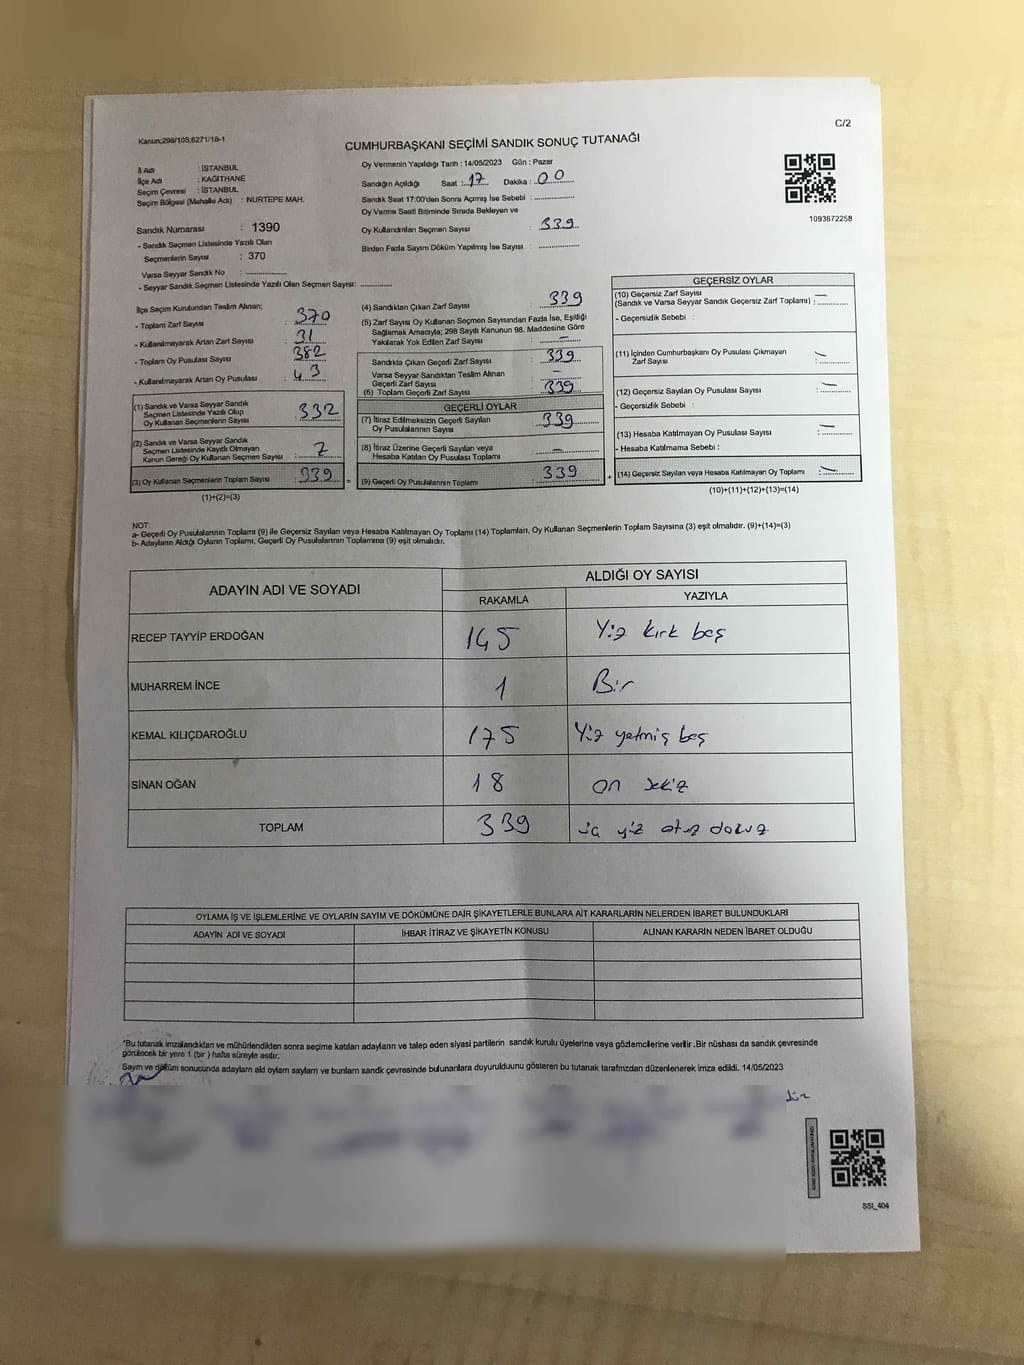 C/2
Kanun;298/105;6271/18-1
CUMHURBAŞKANI SEÇİMİ SANDIK SONUÇ TUTANAĞI
İl Adı : İSTANBUL
İlçe Adı : KAĞITHANE
Seçim Çevresi : İSTANBUL
Seçim Bölgesi (Mahalle Adı) : NURTEPE MAH.
Sandık Numarası : 1390
- Sandık Seçmen Listesinde Yazılı Olan
Seçmenlerin Sayısı : 370
Varsa Seyyar Sandık No :
- Seyyar Sandık Seçmen Listesinde Yazılı Olan Seçmen Sayısı:
Oy Vermenin Yapıldığı Tarih : 14/05/2023 Gün : Pazar
Sandığın Açıldığı Saat : 17 Dakika : 00
Sandık Saat 17:00'den Sonra Açımış İse Sebebi :
Oy Verme Saati Bitiminde Sırada Bekleyen ve
Oy Kullandırılan Seçmen Sayısı : 339
Birden Fazla Sayım Döküm Yapılmış İse Sayısı :
1093672258
İlçe Seçim Kurulundan Teslim Alınan;
- Toplam Zarf Sayısı : 370
- Kullanılmayarak Artan Zarf Sayısı : 31
- Toplam Oy Pusulası Sayısı : 382
- Kullanılmayarak Artan Oy Pusulası : 43
(1) Sandık ve Varsa Seyyar Sandık
Seçmen Listesinde Yazılı Olup
Oy Kullanan Seçmenlerin Sayısı : 332
(2) Sandık ve Varsa Seyyar Sandık
Seçmen Listesinde Kayıtlı Olmayan
Kanun Gereği Oy Kullanan Seçmen Sayısı : 7
(3) Oy Kullanan Seçmenlerin Toplam Sayısı : 339
(1)+(2)=(3)
(4) Sandıktan Çıkan Zarf Sayısı : 339
(5) Zarf Sayısı Oy Kullanan Seçmen Sayısından Fazla İse, Eşitliği
Sağlamak Amacıyla; 298 Sayılı Kanunun 98. Maddesine Göre
Yakılarak Yok Edilen Zarf Sayısı : —
Sandıkta Çıkan Geçerli Zarf Sayısı : 339
Varsa Seyyar Sandıktan Teslim Alınan
Geçerli Zarf Sayısı : —
(6) Toplam Geçerli Zarf Sayısı : 339
GEÇERLİ OYLAR
(7) İtiraz Edilmeksizin Geçerli Sayılan
Oy Pusulalarının Sayısı : 339
(8) İtiraz Üzerine Geçerli Sayılan veya
Hesaba Katılan Oy Pusulası Toplamı : —
= (9) Geçerli Oy Pusulalarının Toplamı : 339
GEÇERSİZ OYLAR
(10) Geçersiz Zarf Sayısı
(Sandık ve Varsa Seyyar Sandık Geçersiz Zarf Toplamı) : —
- Geçersizlik Sebebi :
(11) İçinden Cumhurbaşkanı Oy Pusulası Çıkmayan
Zarf Sayısı : —
(12) Geçersiz Sayılan Oy Pusulası Sayısı : —
- Geçersizlik Sebebi :
(13) Hesaba Katılmayan Oy Pusulası Sayısı : —
- Hesaba Katılmama Sebebi :
+ (14) Geçersiz Sayılan veya Hesaba Katılmayan Oy Toplamı : —
(10)+(11)+(12)+(13)=(14)
NOT:
a- Geçerli Oy Pusulalarının Toplamı (9) ile Geçersiz Sayılan veya Hesaba Katılmayan Oy Toplamı (14) Toplamları, Oy Kullanan Seçmenlerin Toplam Sayısına (3) eşit olmalıdır. (9)+(14)=(3)
b- Adayların Aldığı Oyların Toplamı, Geçerli Oy Pusulalarının Toplamına (9) eşit olmalıdır.
ADAYIN ADI VE SOYADI
ALDIĞI OY SAYISI
RAKAMLA YAZIYLA
RECEP TAYYİP ERDOĞAN 145 Yüz kırk beş
MUHARREM İNCE 1 Bir
KEMAL KILIÇDAROĞLU 175 Yüz yetmiş beş
SİNAN OĞAN 18 on sekiz
TOPLAM 339 üç yüz otuz dokuz
OYLAMA İŞ VE İŞLEMLERİNE VE OYLARIN SAYIM VE DÖKÜMÜNE DAİR ŞİKAYETLERLE BUNLARA AİT KARARLARIN NELERDEN İBARET BULUNDUKLARI
ADAYIN ADI VE SOYADI İHBAR İTİRAZ VE ŞİKAYETİN KONUSU ALINAN KARARIN NEDEN İBARET OLDUĞU
*Bu tutanak imzalandıktan ve mühürlendikten sonra seçime katılan adayların ve talep eden siyasi partilerin sandık kurulu üyelerine veya gözlemcilerine verilir .Bir nüshası da sandık çevresinde
görülecek bir yere 1 (bir ) hafta süreyle asılır.
Sayım ve döküm sonucunda adayların ald oyların sayıların ve bunların sandk çevresinde bulunanlara duyurulduunu gösteren bu tutanak tarafmzdan düzenlenerek imza edildi. 14/05/2023
SSI_404